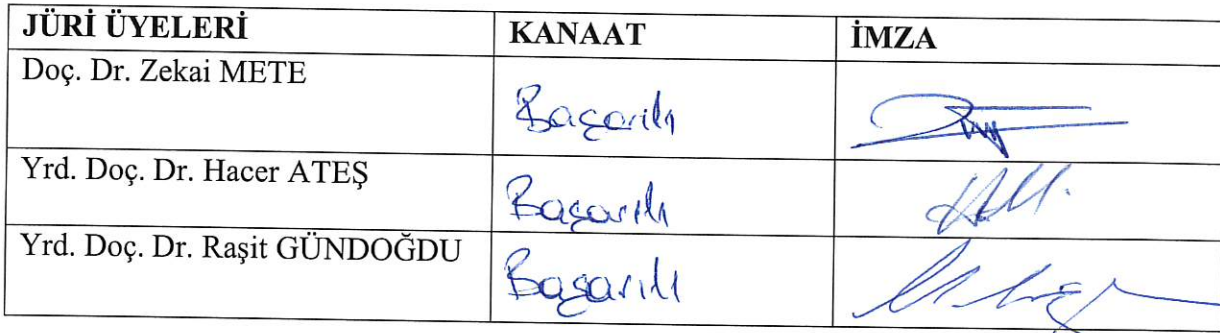 JÜRİ ÜYELERİ KANAAT İMZA
Doç. Dr. Zekai METE Başarılı
Yrd. Doç. Dr. Hacer ATEŞ Başarılı
Yrd. Doç. Dr. Raşit GÜNDOĞDU Başarılı